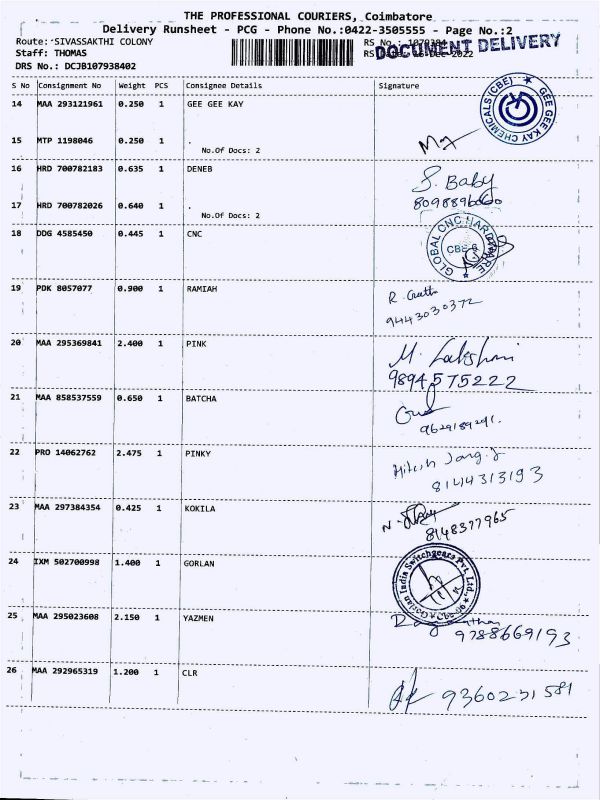 THE PROFESSIONAL COURIERS, Coimbatore
Delivery Runsheet - PCG - Phone No.:0422-3505555 - Page No.:2
Route: SIVASSAKTHI COLONY
RS No.:
DOCUMENT DELIVERY
Staff: THOMAS
DRS No.: DCJB107938402
S No Consignment No Weight PCS Consignee Details Signature
14 MAA 293121961 0.250 1 GEE GEE KAY
GEE GEE KAY CHEMICALS (CBE)
15 MTP 1198046 0.250 1 .
No.Of Docs: 2
16 HRD 700782183 0.635 1 DENEB
Baby
17 HRD 700782026 0.640 1 .
No.Of Docs: 2
18 DDG 4585450 0.445 1 CNC
GLOBAL CNC HARDWARE
CBE-6
19 PDK 8057077 0.900 1 RAMIAH
9443030372
20 MAA 295369841 2.400 1 PINK
M. Lakshmi
9894575222
21 MAA 858537559 0.650 1 BATCHA
9629189291.
22 PRO 14062762 2.475 1 PINKY
8144313193
23 MAA 297384354 0.425 1 KOKILA
8148377965
24 IXM 502700998 1.400 1 GORLAN
Gorlan India Switchgears Pvt. Ltd.,
25 MAA 295023608 2.150 1 YAZMEN
9788669193
26 MAA 292965319 1.200 1 CLR
9360231581